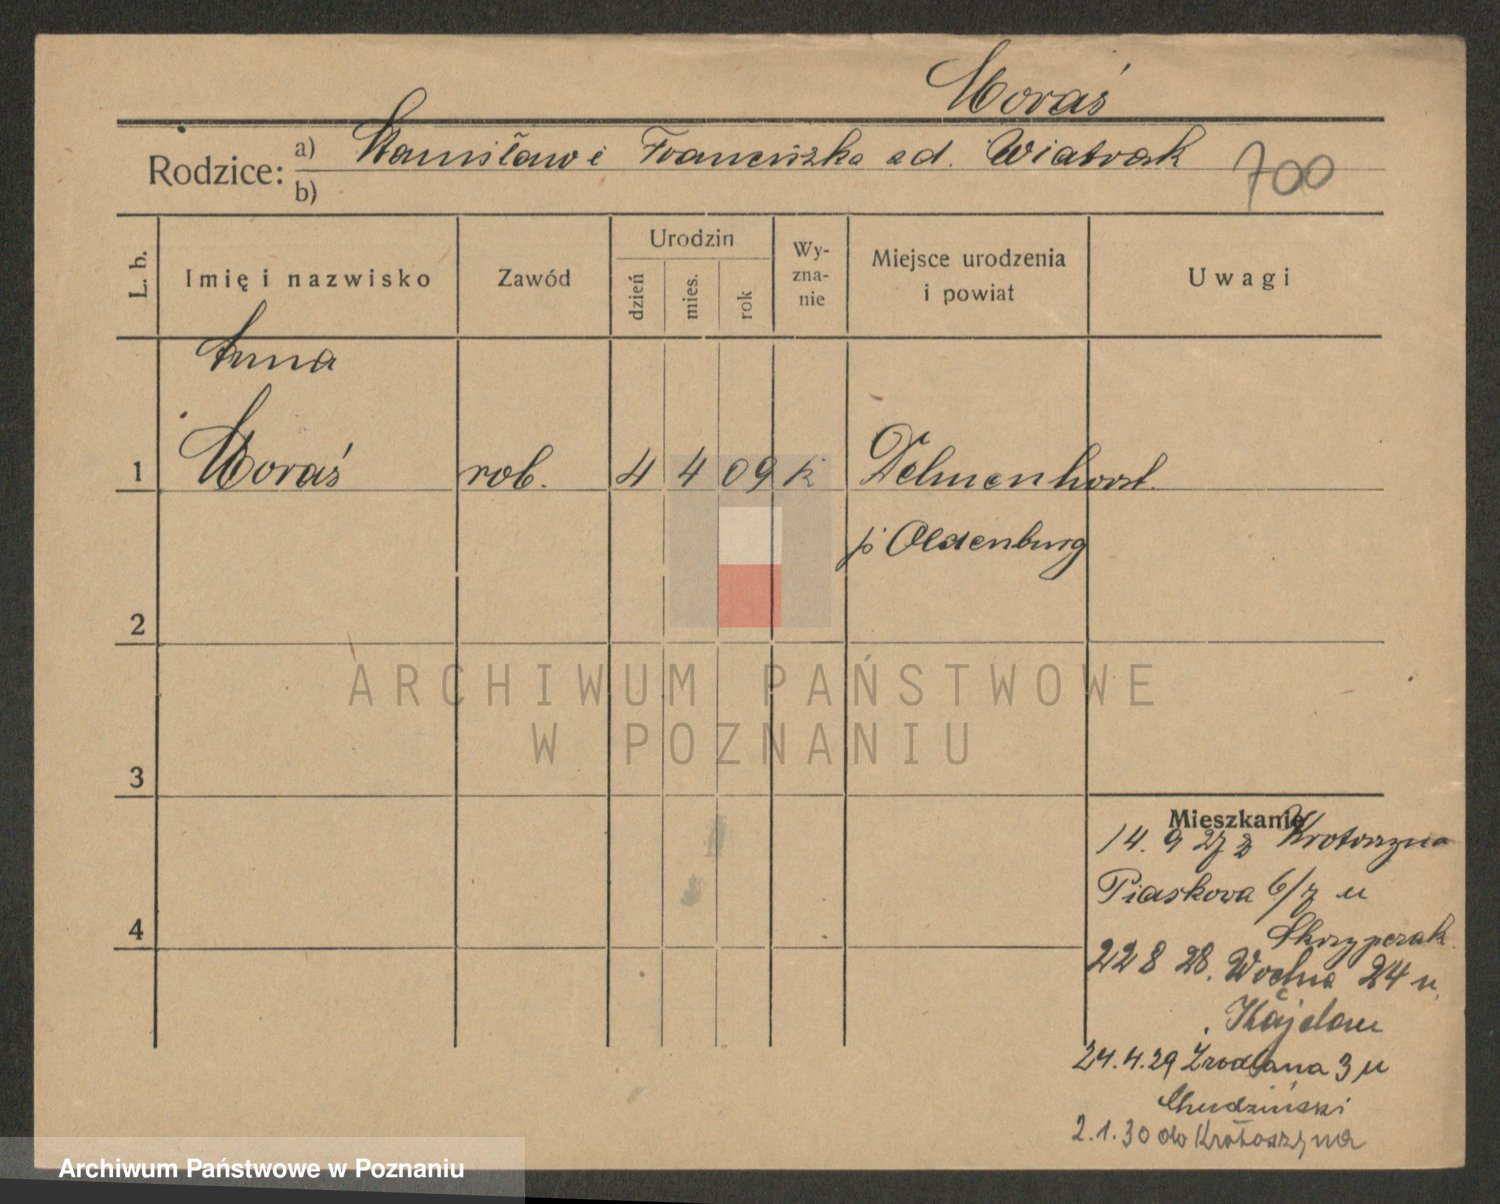 Moraś
Rodzice: a) Stanisław i Franciszka z d. Wiatrak
b)
700
L. b.
Imię i nazwisko
Zawód
Urodzin
dzień
mies.
rok
Wy-
zna-
nie
Miejsce urodzenia
i powiat
Uwagi
Anna
1 Moraś rob. 4 4 09 k Delmenhorst
p. Oldenburg
2
3
4
ARCHIWUM PAŃSTWOWE
W POZNANIU
Mieszkanie
14. 9 27 z Krotoszyna
Piaskowa 6/7 u
Skrzypczak
22 8 28. Wodna 24 u.
24.4.29 Zrodlana 3 u
Chudziński
2.1.30 do Krotoszyna
Archiwum Państwowe w Poznaniu